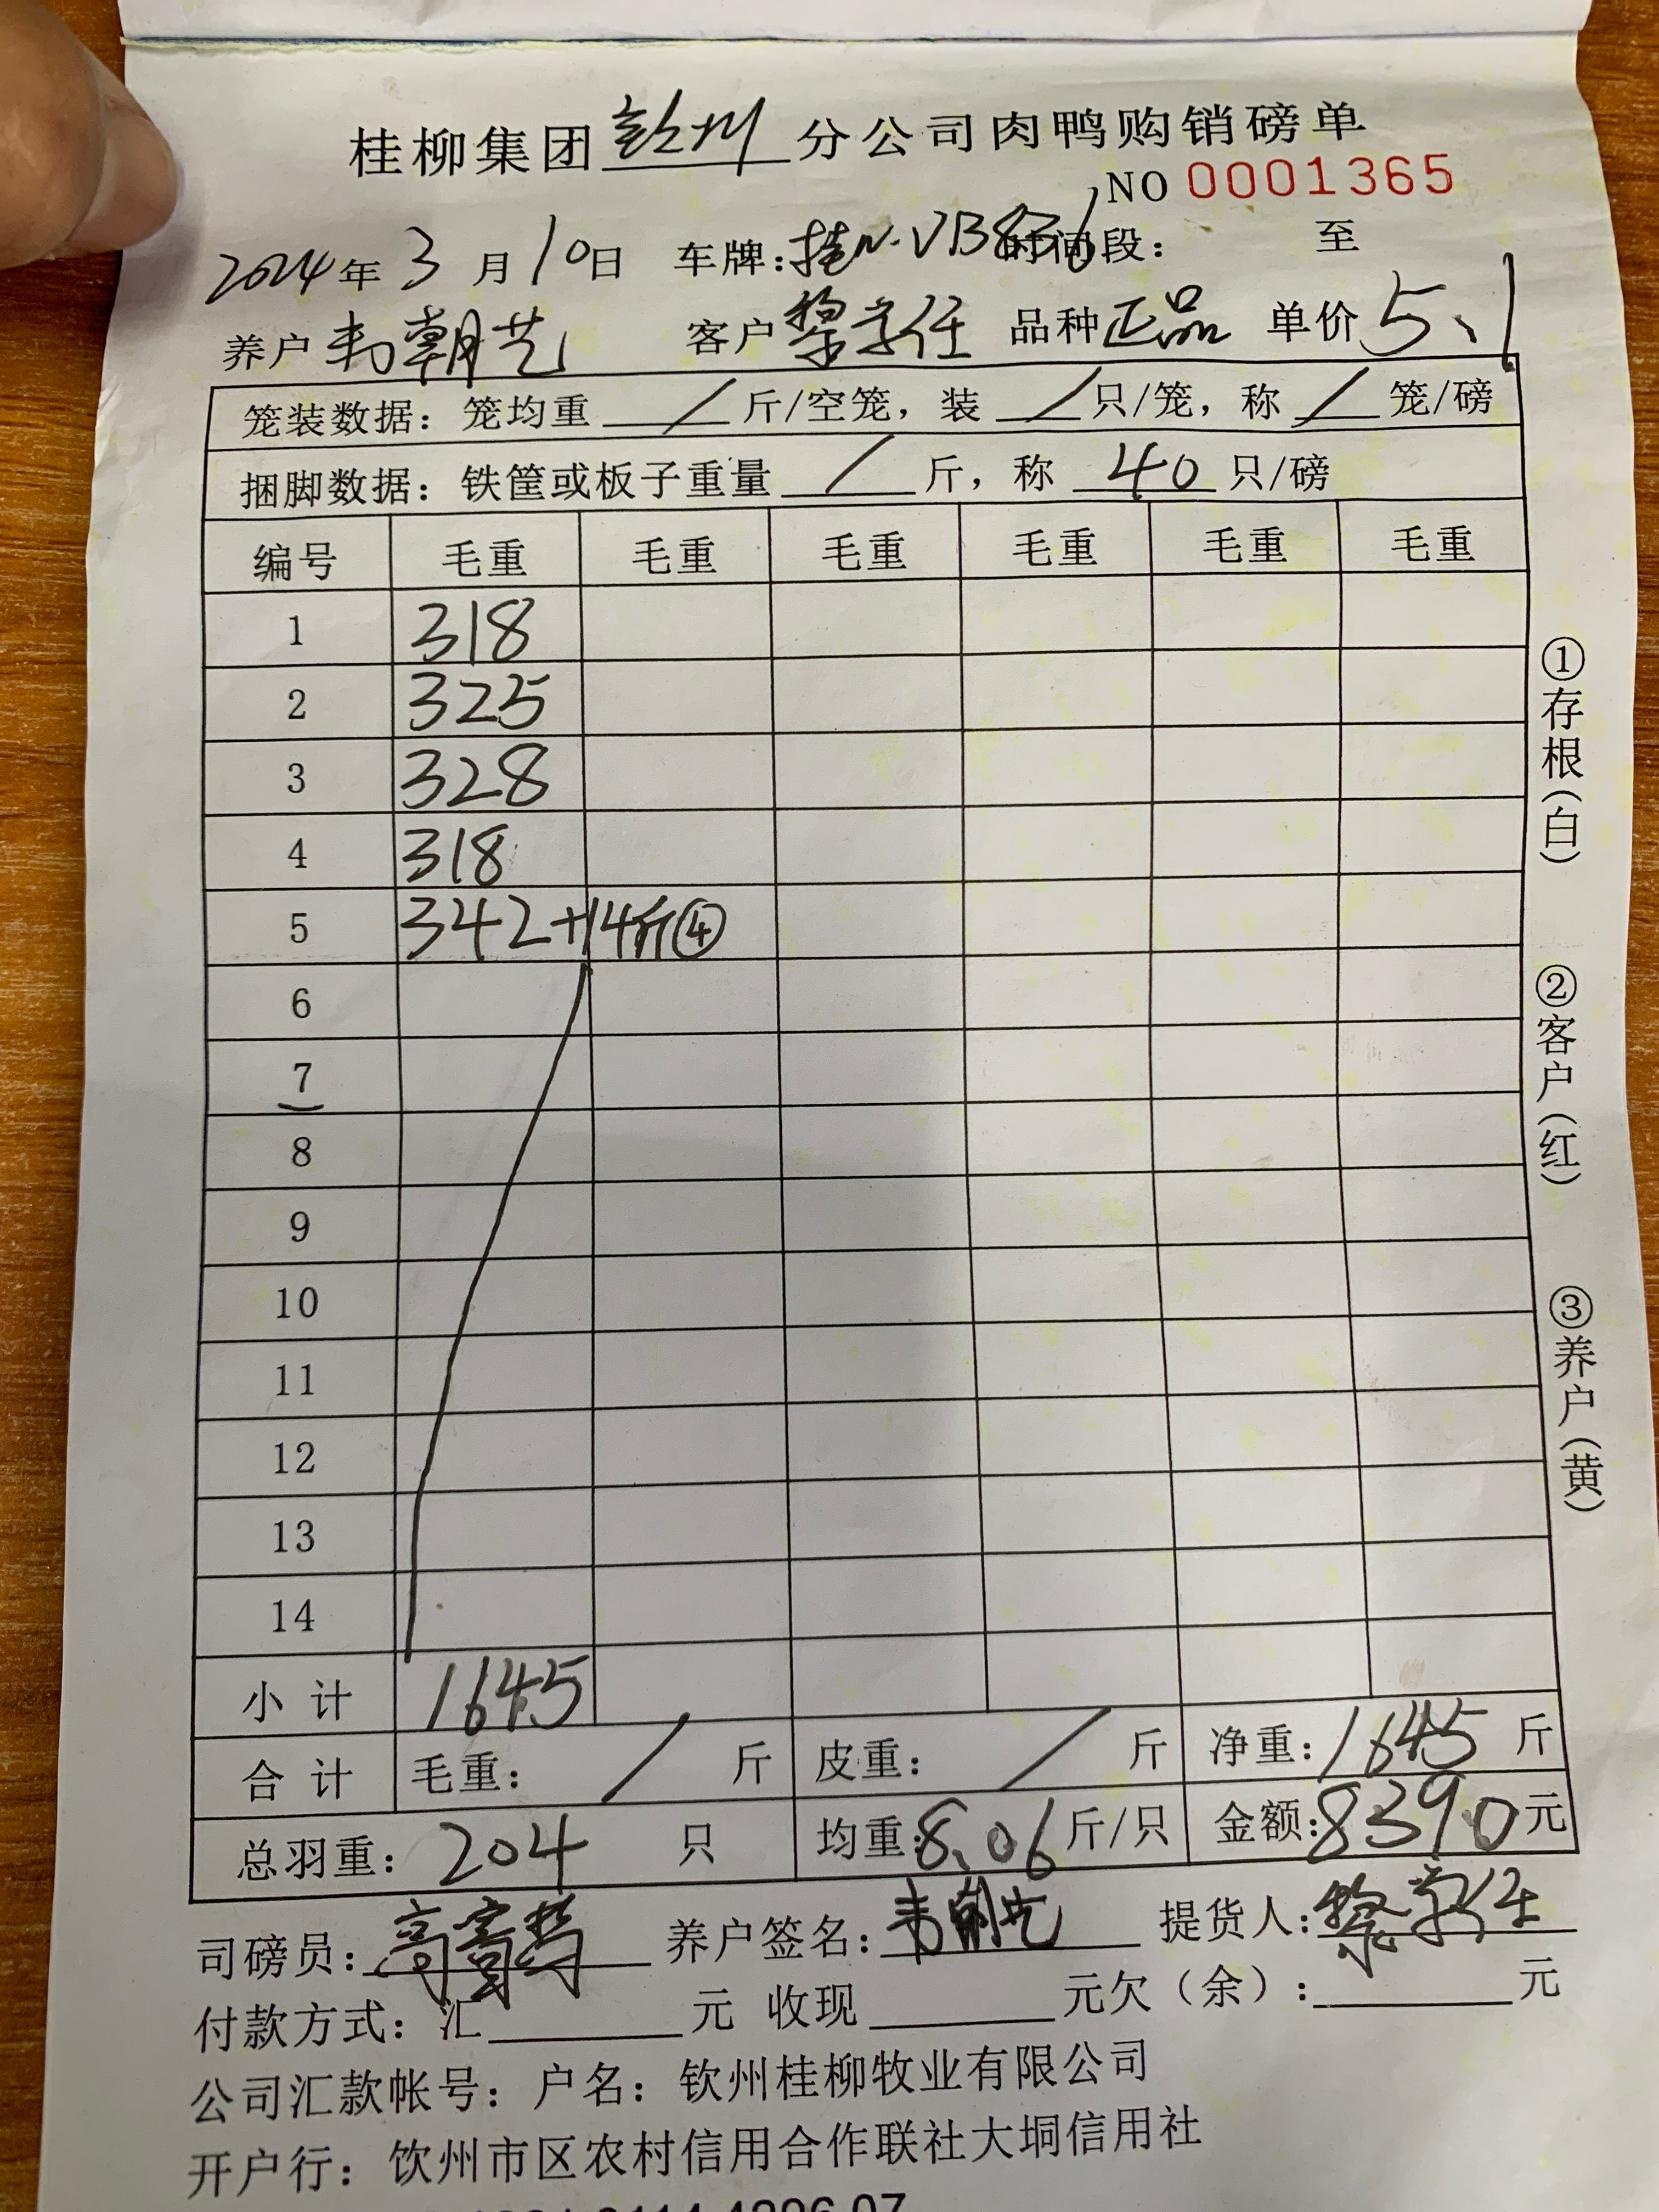 桂柳集团 钦州 分公司肉鸭购销磅单
NO 0001365
2024年 3 月 10日 车牌:桂N·VB836 时间段: 至
养户 韦朝艺 客户 黎学任 品种 正品 单价 5、1
笼装数据：笼均重 / 斤/空笼，装 / 只/笼，称 / 笼/磅
捆脚数据：铁筐或板子重量 / 斤，称 40 只/磅
编号 毛重 毛重 毛重 毛重 毛重 毛重
1 318
2 325
3 328
4 318
5 342+14斤④
6
7
8
9
10
11
12
13
14
小计 1645
合计 毛重： / 斤 皮重： / 斤 净重：1645 斤
总羽重：204 只 均重:8、06斤/只 金额:8390元
司磅员: 高 养户签名:韦朝艺 提货人:黎学任
付款方式：汇 元 收现 元欠（余）: 元
公司汇款帐号：户名：钦州桂柳牧业有限公司
开户行：钦州市区农村信用合作联社大垌信用社
①存根(白)
②客户(红)
③养户(黄)